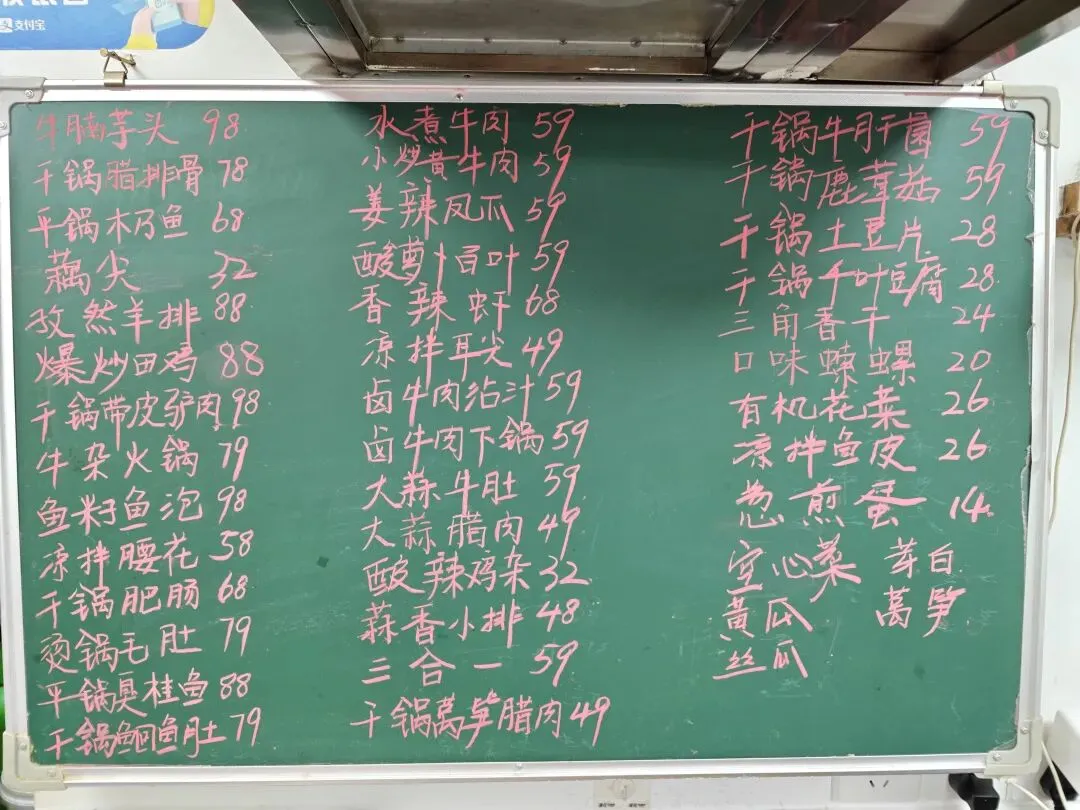 支付宝
牛腩芋头 98
干锅腊排骨 78
平锅木乃鱼 68
藕尖 32
孜然羊排 88
爆炒田鸡 88
干锅带皮驴肉 98
牛杂火锅 79
鱼籽鱼泡 98
凉拌腰花 58
干锅肥肠 68
烫锅毛肚 79
平锅臭桂鱼 88
干锅鮰鱼肚 79
水煮牛肉 59
小炒黄牛肉 59
姜辣凤爪 59
酸萝卜百叶 59
香辣虾 68
凉拌耳尖 49
卤牛肉沾汁 59
卤牛肉下锅 59
大蒜牛肚 59
大蒜腊肉 49
酸辣鸡杂 32
蒜香小排 48
三合一 59
干锅萵笋腊肉 49
干锅牛肝菌 59
干锅鹿茸菇 59
干锅土豆片 28
干锅千叶豆腐 28
三角香干 24
口味螺 20
有机花菜 26
凉拌鱼皮 26
葱煎蛋 14
空心菜 茭白
黄瓜 萵笋
丝瓜